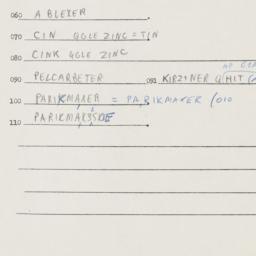 060 A BLEXER
070 CIN GGLE ZINC = TIN
080 CINK GGLE ZINC
090 PELCARBETER 091 KIRZNER G HIT
100 PARIKMAXER = PARIKMAXER / 010
110